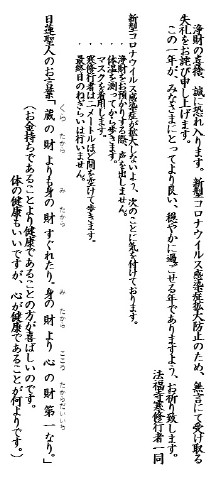 浄財の喜捨、誠に恐れ入ります。新型コロナウイルス感染症拡大防止のため、無言にて受け取る
失礼をお詫び申し上げます。
この一年が、みなさまにとってより良い、穏やかに過ごせる年でありますよう、お祈り致します。
法福寺寒修行者一同
新型コロナウイルス感染症が拡大しないよう、次のことに気を付けております。
・浄財をお預かりする際、声を出しません。
・体温を測ってから歩きます。
・マスクを着用します。
・寒修行者は二メートルほど間を空けて歩きます。
・最終日のねぎらいは行いません。
日蓮聖人のお言葉「蔵の財よりも身の財すぐれたり。身の財より心の財第一なり。」
くら たから み たから み たから こころ たからだいいち
（お金持ちであることより健康であることの方が喜ばしいのです。
体の健康もいいですが、心が健康であることが何よりです。）